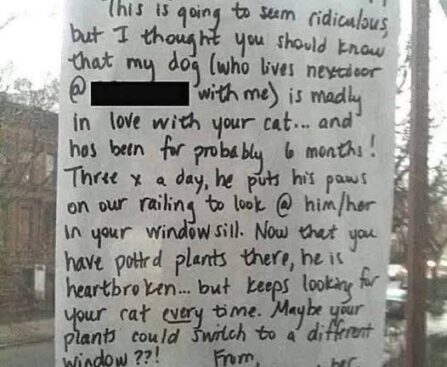 This is going to seem ridiculous,
but I thought you should know
that my dog (who lives nextdoor
@ with me) is madly
in love with your cat... and
has been for probably 6 months!
Three x a day, he puts his paws
on our railing to look @ him/her
in your windowsill. Now that you
have pottrd plants there, he is
heartbroken... but keeps looking for
your cat every time. Maybe your
plants could switch to a different
window??! From,
her